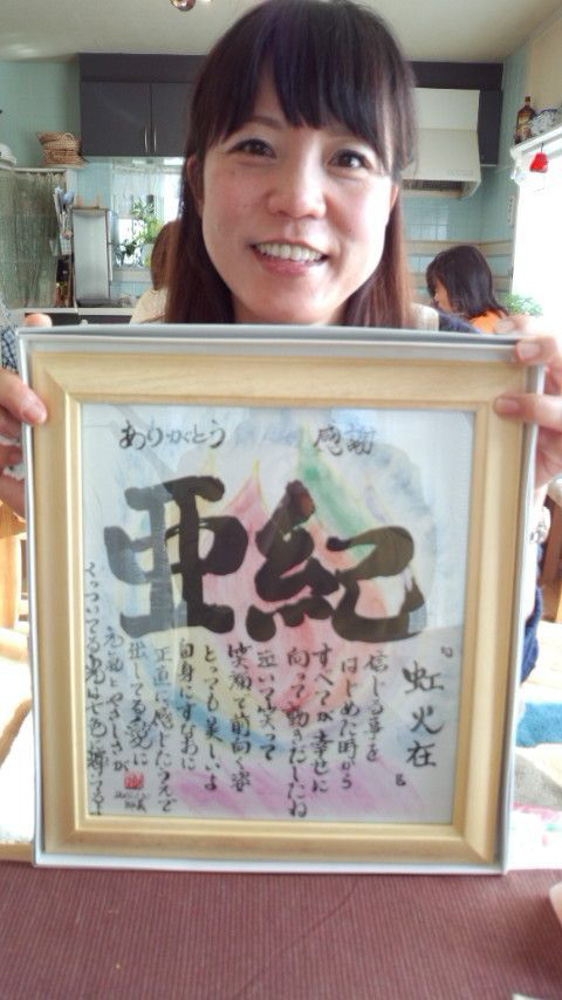 ありがとう 感謝
亜紀
『虹火在』
信じる事を
はじめた時から
すべてが幸せに
向って動きだしたね
泣いて笑って
笑顔で前向く姿
とっても美しいよ
自身にすなおに
正直に感じたうえで
出してる愛に
とやさしさが
くっついてる